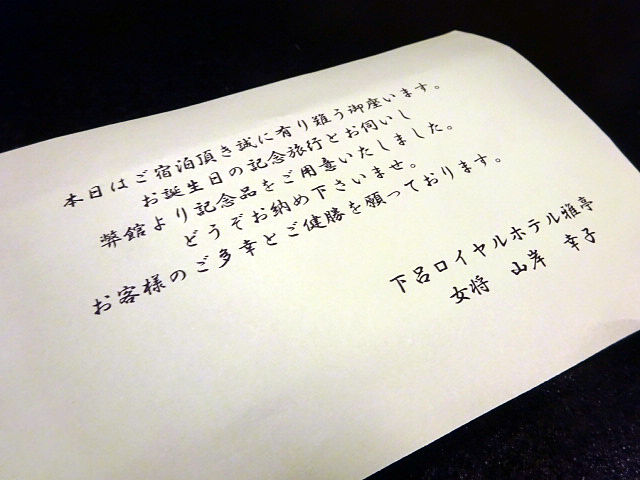 本日はご宿泊頂き誠に有り難う御座います。
お誕生日の記念旅行とお伺いし
弊館より記念品をご用意いたしました。
どうぞお納め下さいませ。
お客様のご多幸とご健勝を願っております。
下呂ロイヤルホテル雅亭
女将 山岸 幸子